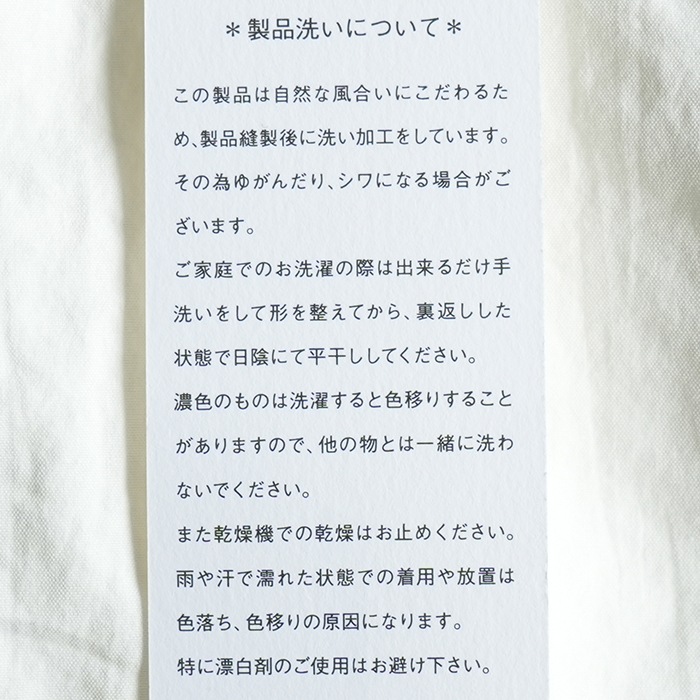 ＊製品洗いについて＊
この製品は自然な風合いにこだわるた
め、製品縫製後に洗い加工をしています。
その為ゆがんだり、シワになる場合がご
ざいます。
ご家庭でのお洗濯の際は出来るだけ手
洗いをして形を整えてから、裏返しした
状態で日陰にて平干ししてください。
濃色のものは洗濯すると色移りすること
がありますので、他の物とは一緒に洗わ
ないでください。
また乾燥機での乾燥はお止めください。
雨や汗で濡れた状態での着用や放置は
色落ち、色移りの原因になります。
特に漂白剤のご使用はお避け下さい。